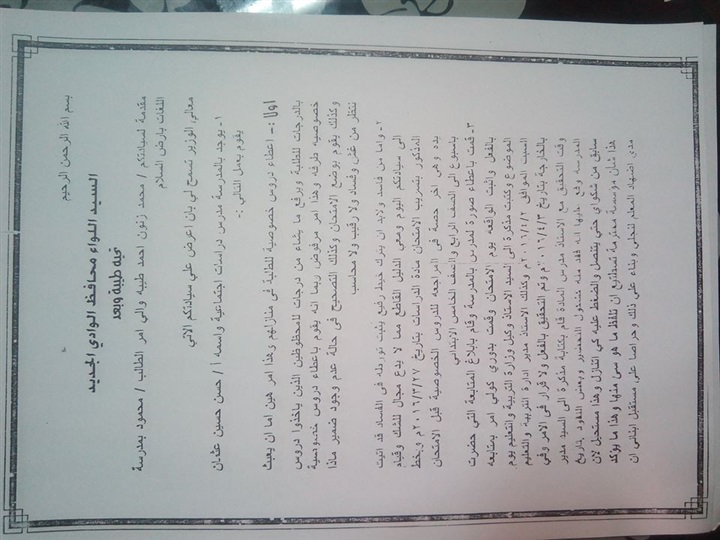 بسم الله الرحمن الرحيم
السيد اللواء محافظ الوادي الجديد
تحية طيبة وبعد
مقدمة لسيادتكم / محمد زنون احمد طيبه والي امر الطالب / محمود بمدرسة
اللغات بارض السلام
معالي الوزير تسمح لي بان اعرض علي سيادتكم الاتي
١- يوجد بالمدرسة مدرس دراسات اجتماعية واسمه أ / حسن حسين عثمان
يقوم بعمل التالي :-
اولا :- اعطاء دروس خصوصية للطلبة في منازلهم وهذا امر هين اما ان يعبث
بالدرجات للطلبة ويرفع ما يشاء من درجات للمحظوظين الذين ياخذوا دروس
خصوصيه طرفه وهذا امر مرفوض ربما انه يقوم باعطاء دروس خصوصية
وكذلك يقوم بوضع الامتحان وكذلك التصحيح في حالة عدم وجود ضمير ماذا
ننتظر من غش وفساد ولا رقيب ولا محاسب
٢- واما من فاسد ولابد ان يترك خيط رفيع يثبت تورطه في الفساد قد اتيت
الي سيادتكم اليوم ومعي الدليل القاطع مما لا يدع مجال للشك وقيام
المذكور بتسريب الامتحان لمادة الدراسات بتاريخ ٢٠١٦/٣/٢٧م وبخط
يده وهي اخر حصة في المراجعه للدروس الخصوصية قبل الامتحان
باسبوع الي الصف الرابع والصف الخامس الابتدائي
٣- قمت باعطاء صورة لمدرس بالمدرسة وقام بابلاغ المتابعة التي حضرت
بالفعل واثبت الواقعه يوم الامتحان وقمت بدوري كولي امر بمتابعه
الموضوع وكتبت مذكرة الي السيد الاستاذ وكيل وزارة التربية والتعليم يوم
السبت الموافق ٢٠١٦/٤/٢م وكذلك الاستاذ مدير ادارة التربية والتعليم
بالخارجة بتاريخ ٢٠١٦/٤/٣م وتم التحقيق بالفعل ولا قرار في الامر وفي
وقت التحقيق مع الاستاذ مدرس المادة قام بكتابة مذكرة الي السيد مدير
المدرسة وقع عليها انه فقد منه كشكول التحضير وبعض النقود بتاريخ
سابق من شكواي حتي يتنصل والضغط عليه كي اتنازل وهذا مستحيل لان
هذا شان مؤسسة محترمة تستطيع ان تلفظ ما هو سئ منها وهذا ما يؤكد
مدي اضطهاد المعلم لنجلي وبناء علي ذلك وحرصا علي مستقبل ابنائي ان